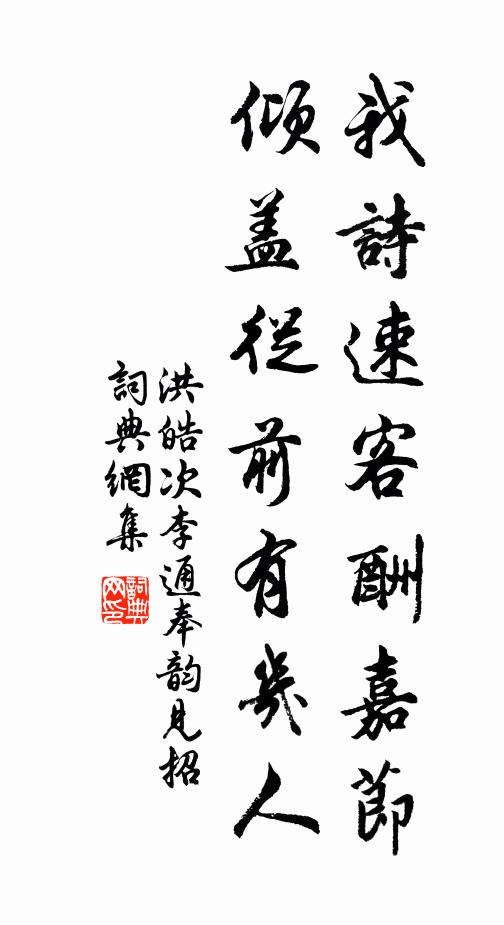 我詩速客酬嘉節
傾盖從前有幾人
洪皓次李通奉韵見招
詞典網集
詞典網印